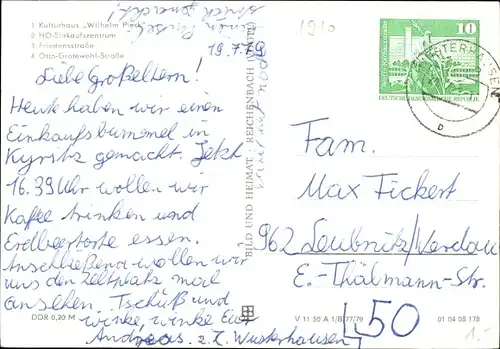 1 Kulturhaus „Wilhelm Pieck“
2 HO-Einkaufszentrum
3 Friedensstraße
4 Otto-Grotewohl-Straße
19.7.79
Liebe Großeltern!
Heute haben wir einen
Einkaufsbummel in
Kyritz gemacht. Jetzt
16.39 Uhr wollen wir
Kaffee trinken und
Erdbeertorte essen.
Anschließend wollen wir
uns den Zeltplatz mal
ansehen. Tschüß und
winke, winke Euer
Andreas z. Z. Wusterhausen
DDR 0,20 M
BILD UND HEIMAT · REICHENBACH (VOGTL)
1910
10
DEUTSCHE DEMOKRATISCHE REPUBLIK
Fam.
Max Fickert
962 Leubnitz/Werdau
E.-Thälmann-Str.
50
V 11 50 A 1/B 77/79
01 04 08 178
1.-